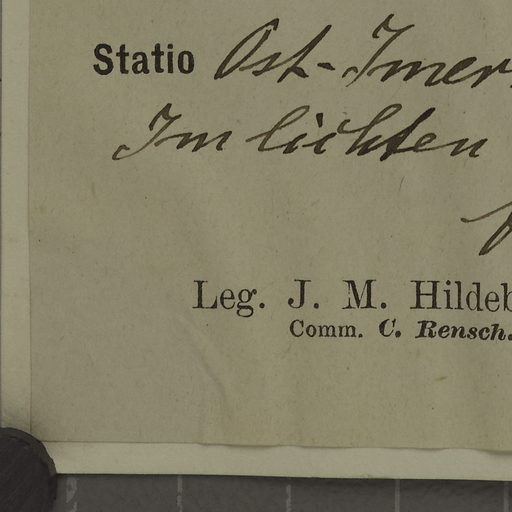 Statio Ost-Imer
Im lichten
Leg. J. M. Hildeb
Comm. C. Rensch.